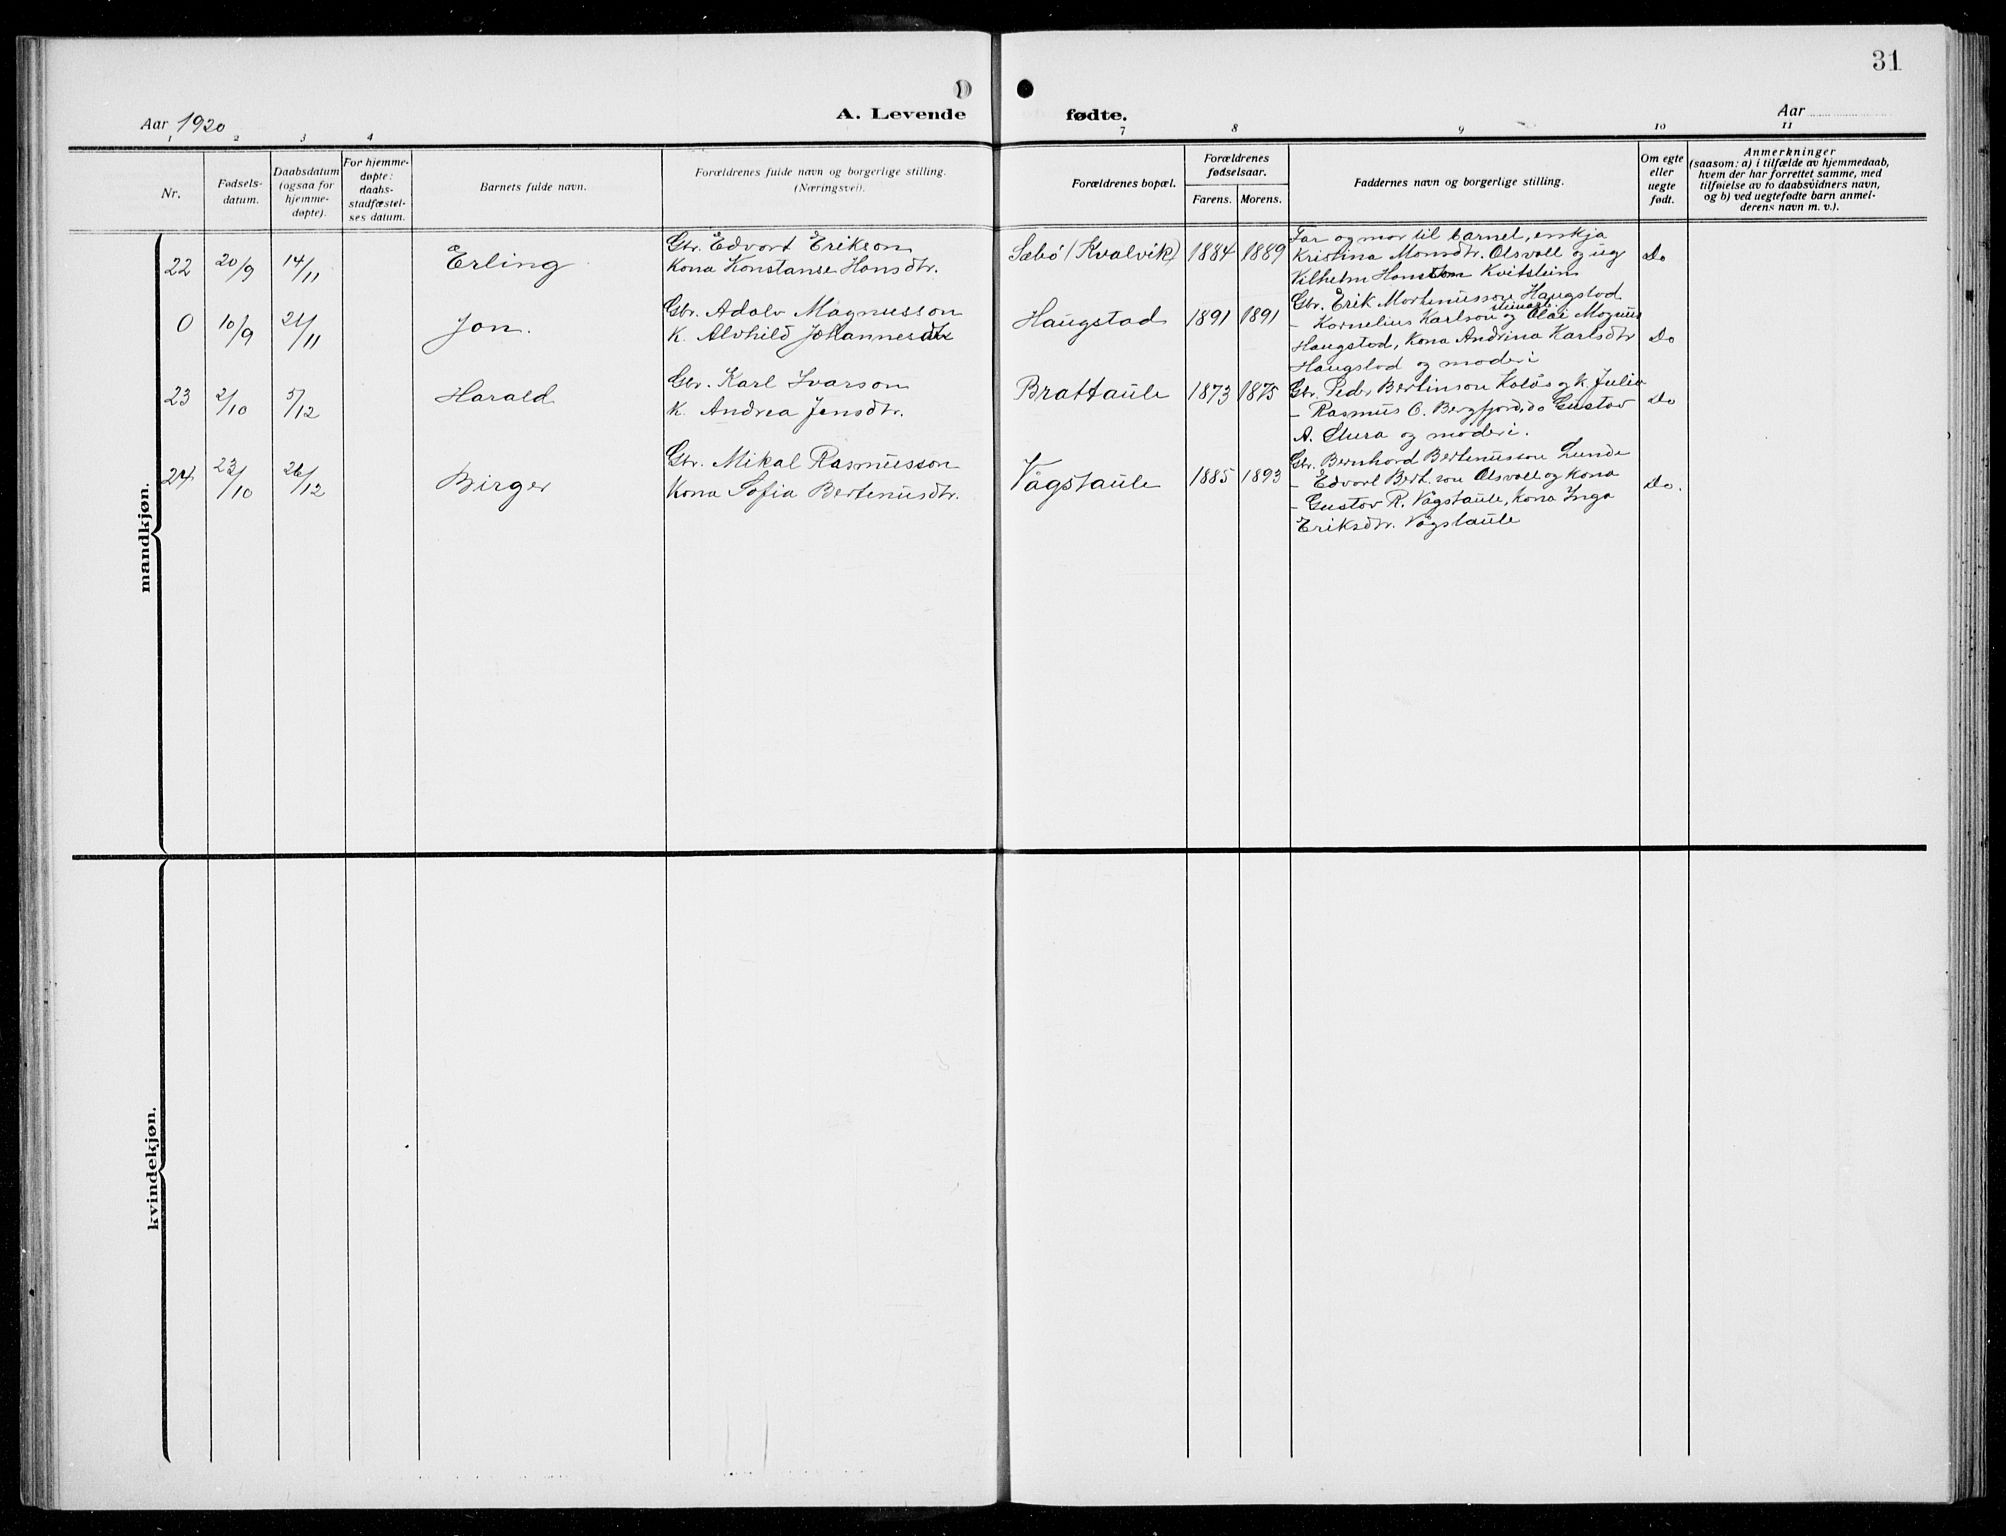 31
Aar 1920
A. Levende
fødte.
Aar
1 2 3 4 7 8 9 10 11
Nr.
Fødsels-
datum.
Daabsdatum
(ogsaa for
hjemme-
døpte).
For hjemme-
døpte:
daabs-
stadfæstel-
ses datum.
Barnets fulde navn.
Forældrenes fulde navn og borgerlige stilling.
(Næringsvei).
Forældrenes bopæl.
Forældrenes
fødselsaar.
Farens. Morens.
Faddernes navn og borgerlige stilling.
Om egte
eller
uegte
født.
Anmerkninger
(saasom: a) i tilfælde av hjemmedaab,
hvem der har forrettet samme, med
tilføielse av to daabsvidners navn,
og b) ved uegtefødte barn anmel-
derens navn m. v.).
mandkjøn.
22 20/9 14/11 Erling
Gbr. Edvart Erikson
Kona Konstanse Hansdtr.
Sæbø (Kvalvik) 1884 1889
Far og mor til barnet, enkja
Kristina Monsdtr. Olsvoll og ug
Vilhelm Hansson Kvitstein
Do
0 10/9 21/11 Jon.
Gbr. Adolv Magnusson
K. Alvhild Johannesdtr
Haugstad 1891 1891
Gbr. Erik Mortenusson Haugstad
- Kornelius Karlson og Olai Magnus
Haugstad, Kona Andrina Karlsdtr
Haugstad og moderi
Do
23 2/10 5/12 Harald
Gbr. Karl Ivarson
K. Andrea Jensdtr.
Brattaule 1873 1875
Gbr. Peder Bertinson Kolås og k. Julia
- Rasmus O. Bergfjord, do Gustav
A. Stura og moderi.
Do
24 23/10 26/12 Birger
Gbr. Mikal Rasmusson
Kona Sofia Bertenusdtr.
Vågstaule 1885 1893
Gbr. Bernhard Bertenusson Lunde
- Edvart Bert.son Olsvoll og kona
- Gustav R. Vågstaule, kona Inga
Eriksdtr. Vågstaule
Do.
kvindekjøn.